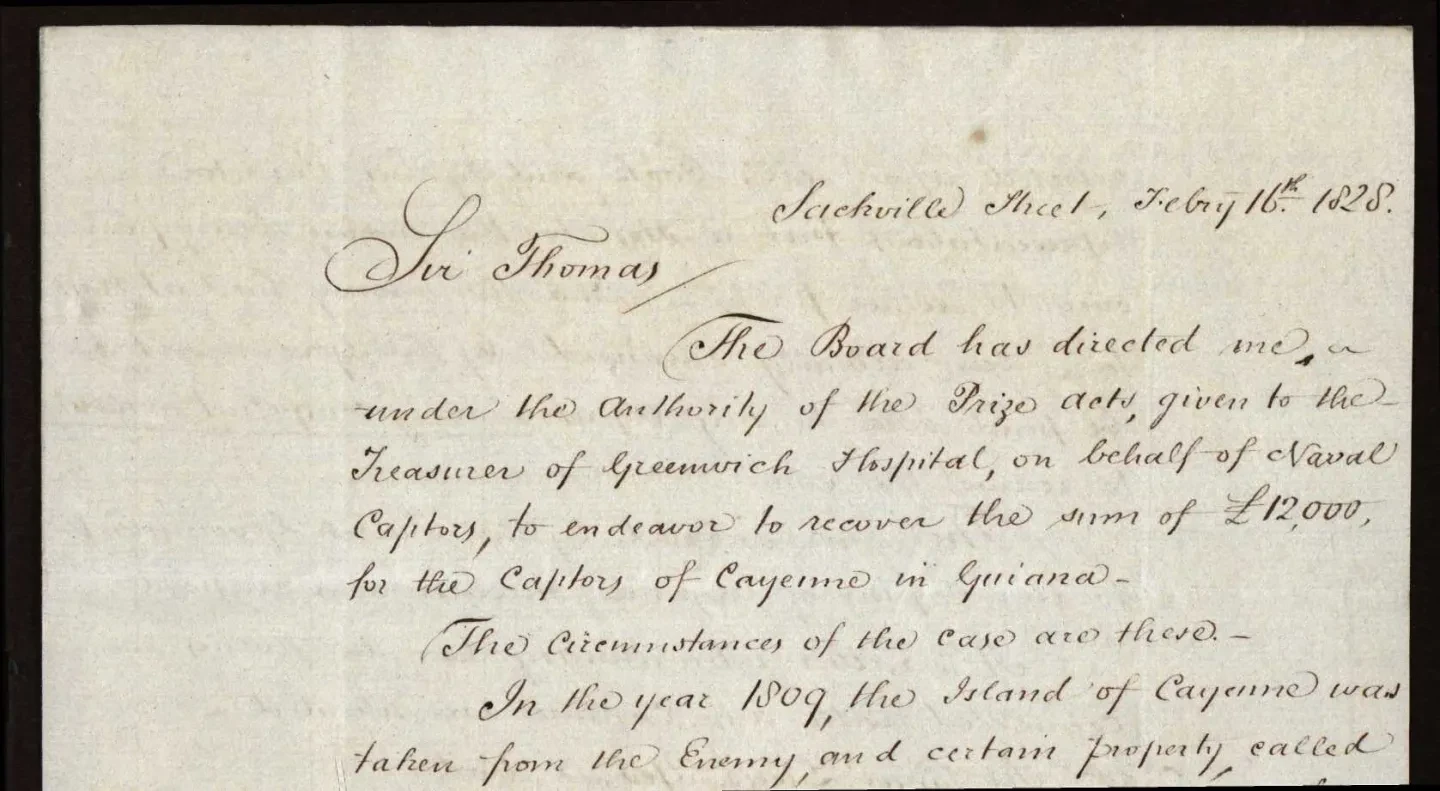 Sackville Street, Febry 16th. 1828.
Sir Thomas
The Board has directed me,
under the Authority of the Prize acts, given to the
Treasurer of Greenwich Hospital, on behalf of Naval
Captors, to endeavor to recover the sum of £12,000,
for the Captors of Cayenne in Guiana -
The Circumstances of the case are these. -
In the year 1809, the Island of Cayenne was
taken from the Enemy, and certain property, called